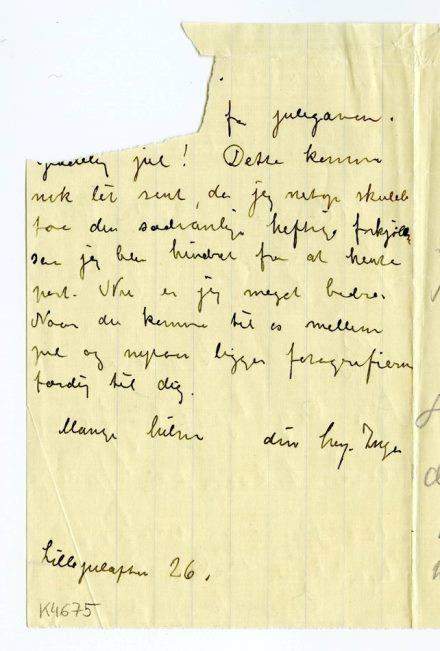 for julegaven.
jul! Dette kommer
nok lit sent, da jeg netop skulde
faa den sedvanlige heftige forkjølelse
saa jeg blev hindret fra at hente
post. Nu er jeg meget bedre.
Naar du kommer til os mellem
jul og nytaar ligger fotografierne
færdig til dig.
Mange hilsner din
Lillejuleaften 26.
K4675